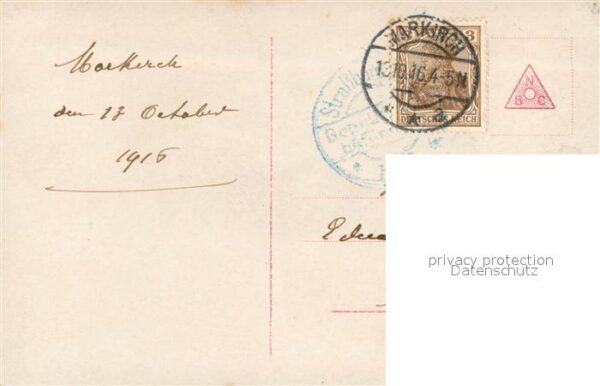 Markirch
den 13 October
1916
MARKIRCH
13.10.16.4-5N
3
DEUTSCHES REICH
Straßb
N
B C
Edua
privacy protection
Datenschutz